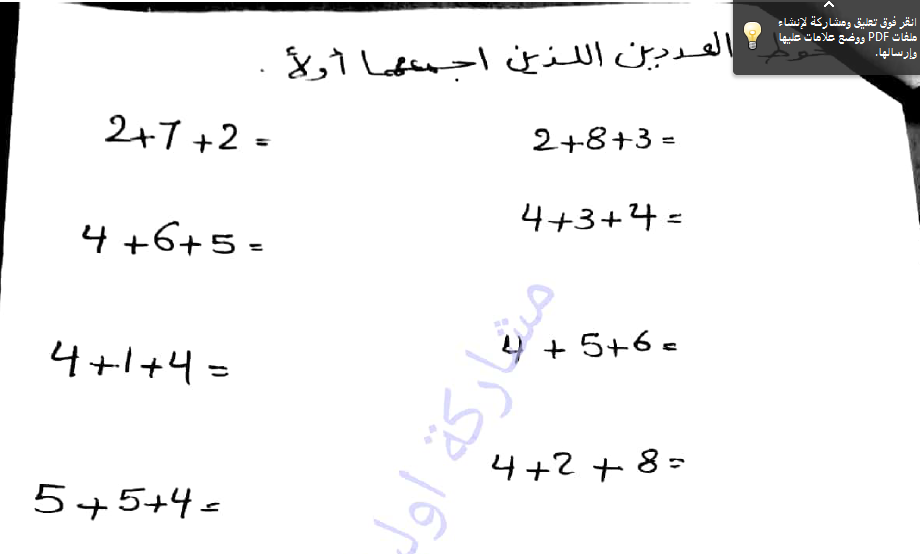 انقر فوق تعليق ومشاركة لإنشاء
ملفات PDF ووضع علامات عليها
وإرسالها.
العددين اللذين اجمعهما أولاً .
2+8+3=
2+7+2=
4+3+4=
4+6+5=
4+5+6=
4+1+4=
4+2+8=
5+5+4=
مشاركة اول